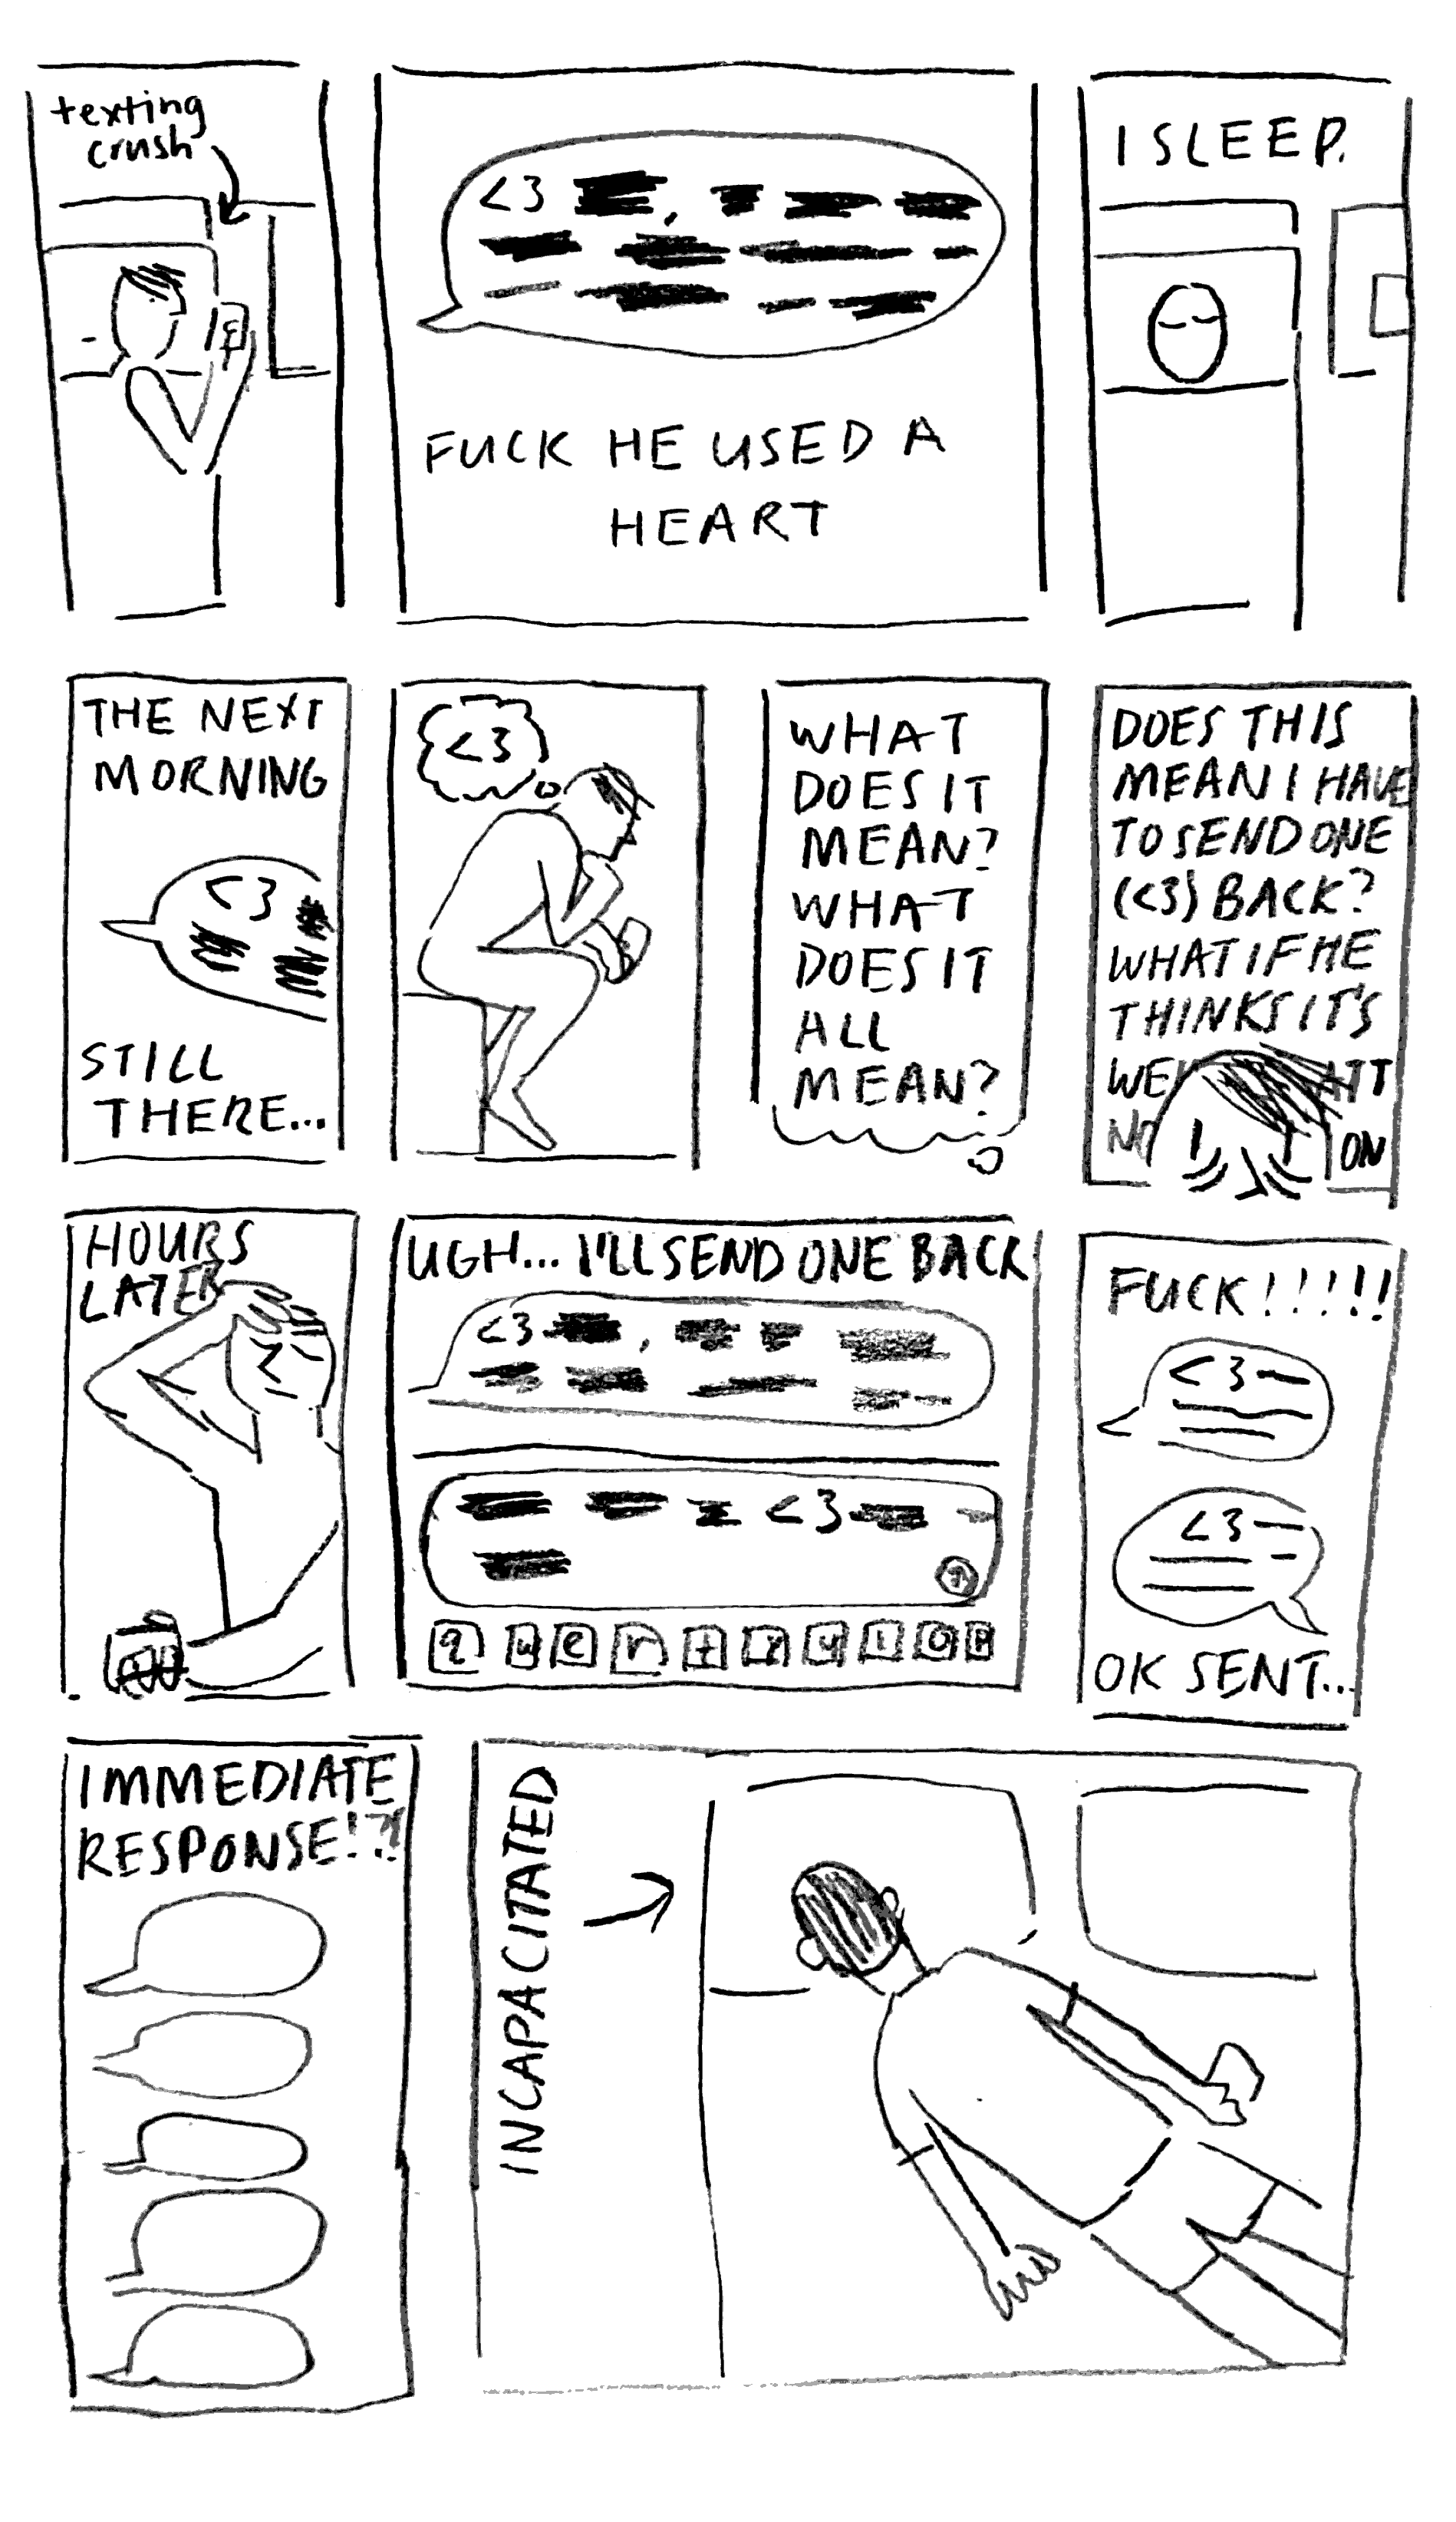 texting
crush
<3 ,
FUCK HE USED A
HEART
I SLEEP.
THE NEXT
MORNING
<3
STILL
THERE...
<3
WHAT
DOES IT
MEAN?
WHAT
DOES IT
ALL
MEAN?
DOES THIS
MEAN I HAVE
TO SEND ONE
(<3) BACK?
WHAT IF HE
THINKS IT'S
ON
HOURS
LATER
UGH... I'LL SEND ONE BACK
<3 ,
<3
q w e r t y u i o p
FUCK!!!!!
<3
<3
OK SENT...
IMMEDIATE
RESPONSE!?!
INCAPACITATED